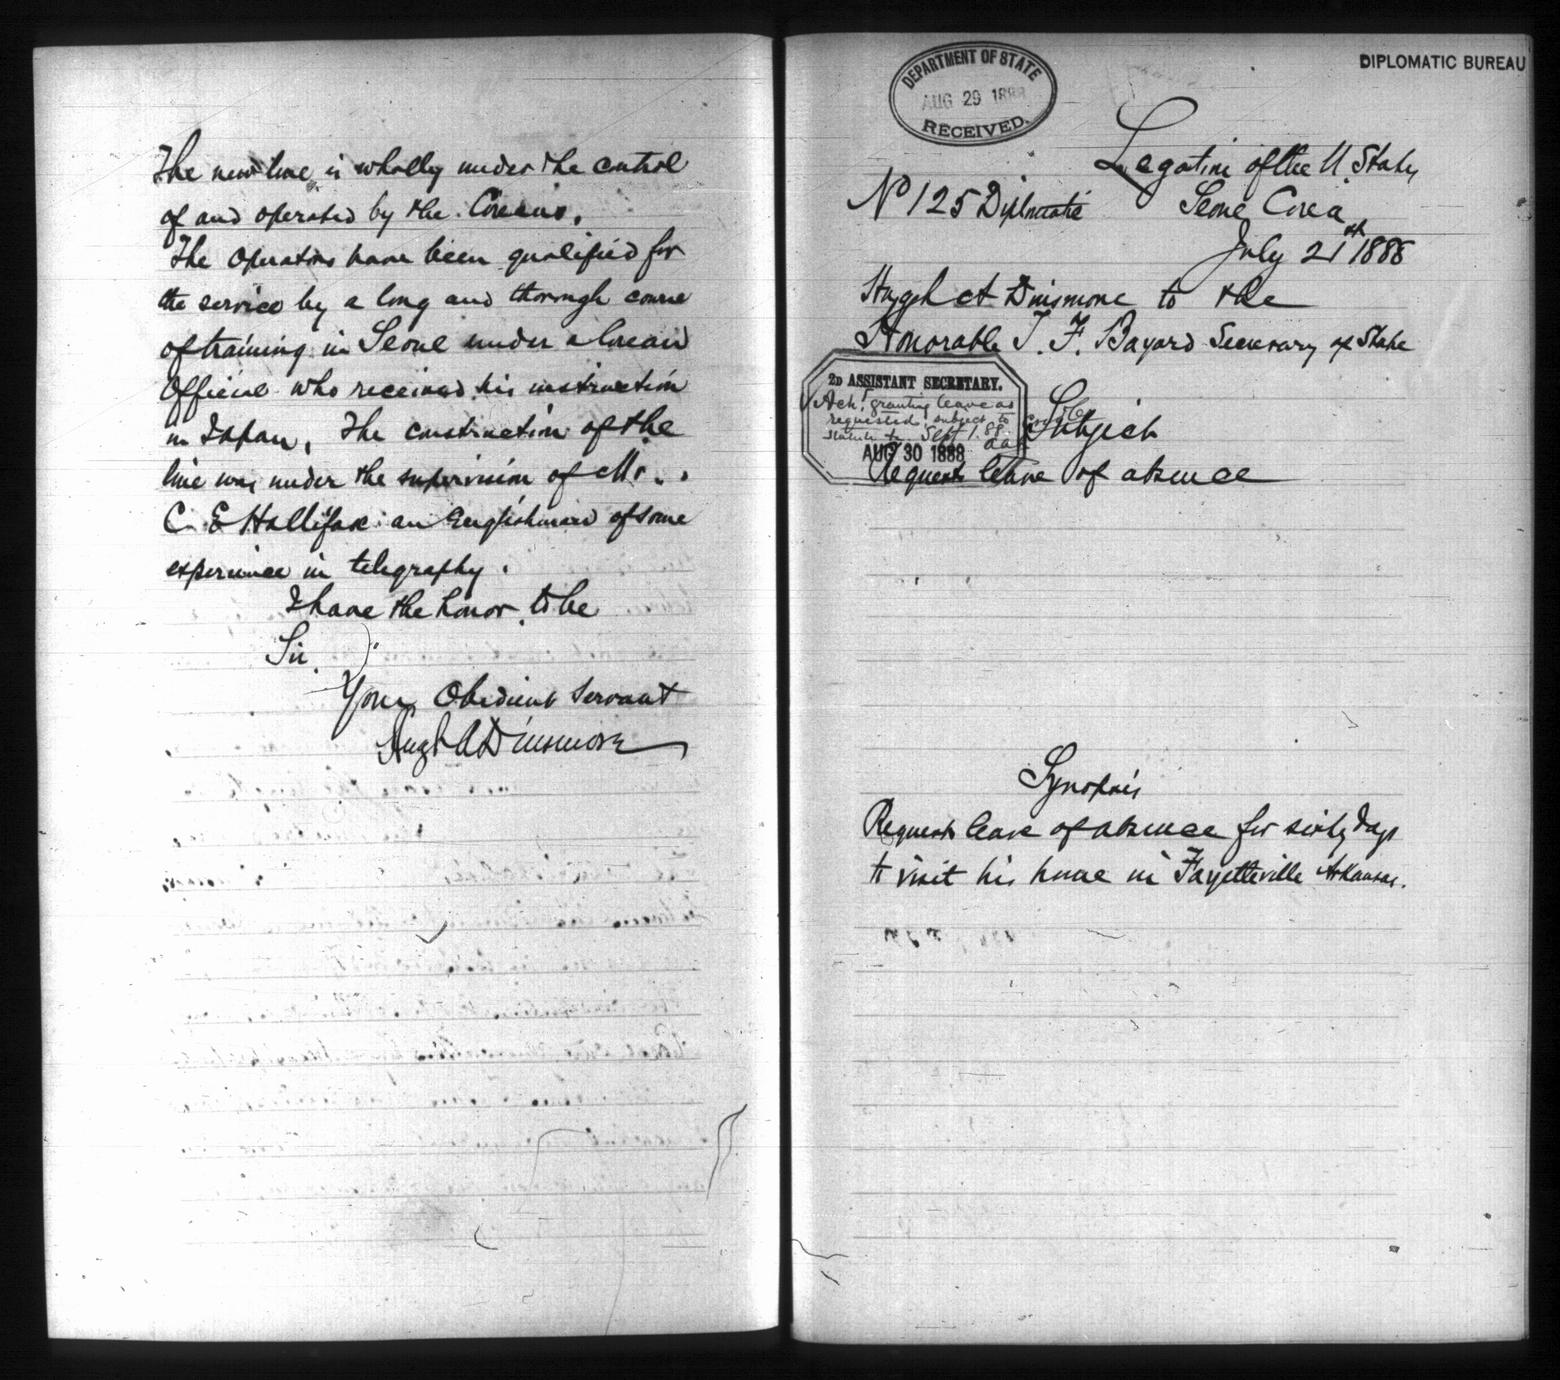 The new line is wholly under the control
of and operated by the Coreans.
The operators have been qualified for
the service by a long and thorough course
of training in Seoul under a Corean
Official who received his instruction
in Japan. The construction of the
line was under the supervision of Mr.
C. E Hallifax an Englishman of some
experience in telegraphy.
I have the honor to be
Sir
Your Obedient Servant
Hugh A Dinsmore
DIPLOMATIC BUREAU
DEPARTMENT OF STATE
AUG 29 1888
RECEIVED.
Legation of the U. States
No 125 Diplomatic Seoul Corea
July 21st 1888
Hugh A Dinsmore to the
Honorable T. F. Bayard Secretary of State
2D ASSISTANT SECRETARY.
Ack. granting leave as
requested, subject to
statute Sept 1. 88.
AUG 30 1888
Subject
Request leave of absence
Synopsis
Requests leave of absence for sixty days
to visit his home in Fayetteville Arkansas.